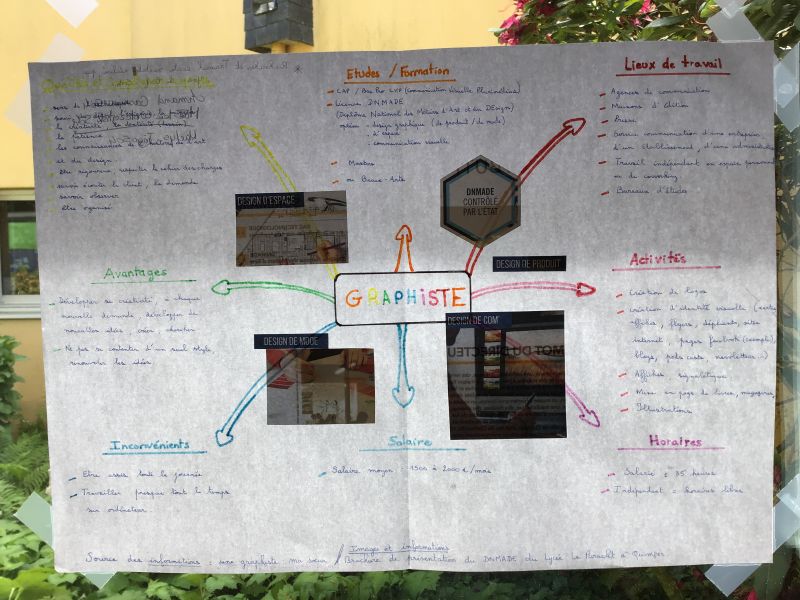 Etudes / Formation
- CAP / Bac Pro CVP (Communication Visuelle Plurimédia)
- Licence DNMADE
(Diplôme National des Métiers d'Art et du DEsign)
option - design graphique (de produit / de mode)
- d'espace
- communication visuelle
- Masters
- ou Beaux-Arts
Lieux de travail
- Agences de communication
- Maisons d'édition
- Presse
- Service communication d'une entreprise,
d'un établissement, d'une administration
- Travail indépendant en espace personnel
ou de coworking
- Bureaux d'études
la patience
et du design
- être rigoureux, respecter le cahier des charges
savoir écouter le client, la demande
savoir observer
être organisé
DESIGN D'ESPACE
DNMADE
CONTRÔLÉ
PAR L'ÉTAT
DESIGN DE PRODUIT
GRAPHISTE
DESIGN DE MODE
DESIGN DE COM'
MOT DU DIRECTEU
Avantages
- Développer sa créativité, à chaque
nouvelle demande, développer de
nouvelles idées, créer, chercher
- Ne pas se contenter d'un seul style
renouveler les idées
Activités
- Création de logos
- Création d'identité visuelle (cartes
affiches, flyers, dépliants, sites
internet, pages facebook (exemple),
blogs, podcasts, newsletters...)
- Affiches, signalétique
- Mise en page de livres, magazines,
- Illustrations
Inconvénients
- Etre assis toute la journée
- Travailler presque tout le temps
sur ordinateur
Salaire
- Salaire moyen : 1500 à 2000 € / mois
Horaires
- Salarié = 35 heures
- Indépendant = horaires libres
Images et informations
Source des informations = ma sœur / Brochure de présentation du DNMADE du Lycée Le Paraclet à Quimper